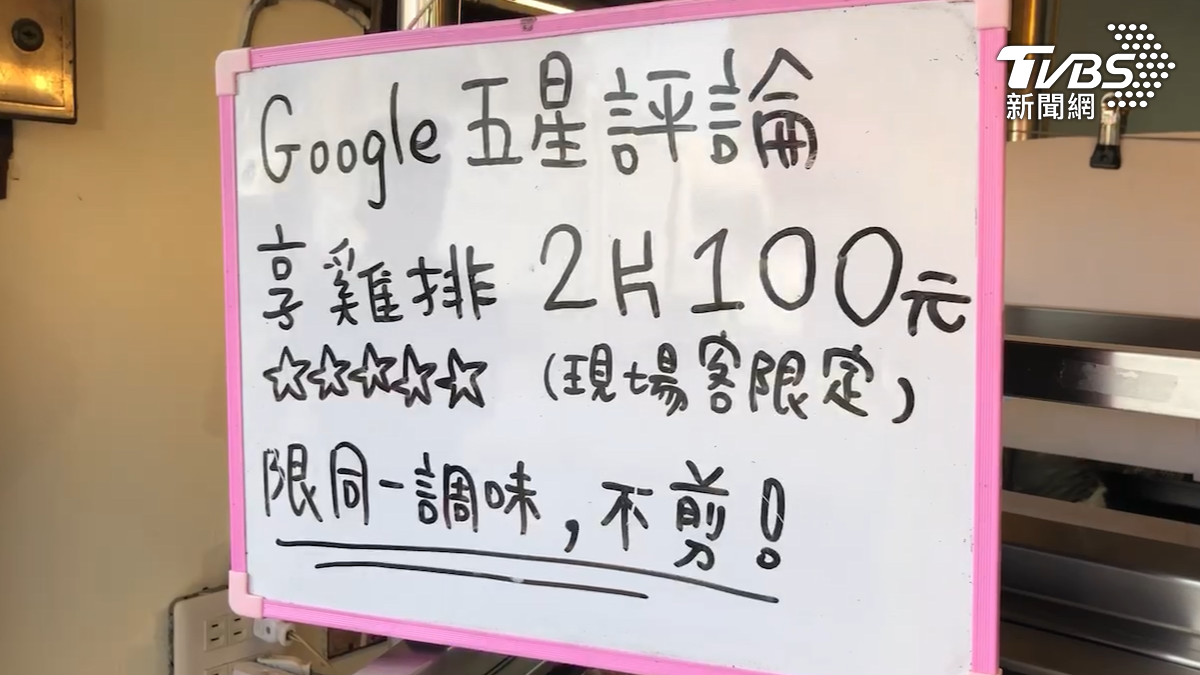 TVBS
新聞網
Google 五星評論
享雞排 2片100元
☆☆☆☆☆ (現場客限定)
限同一調味,不剪!